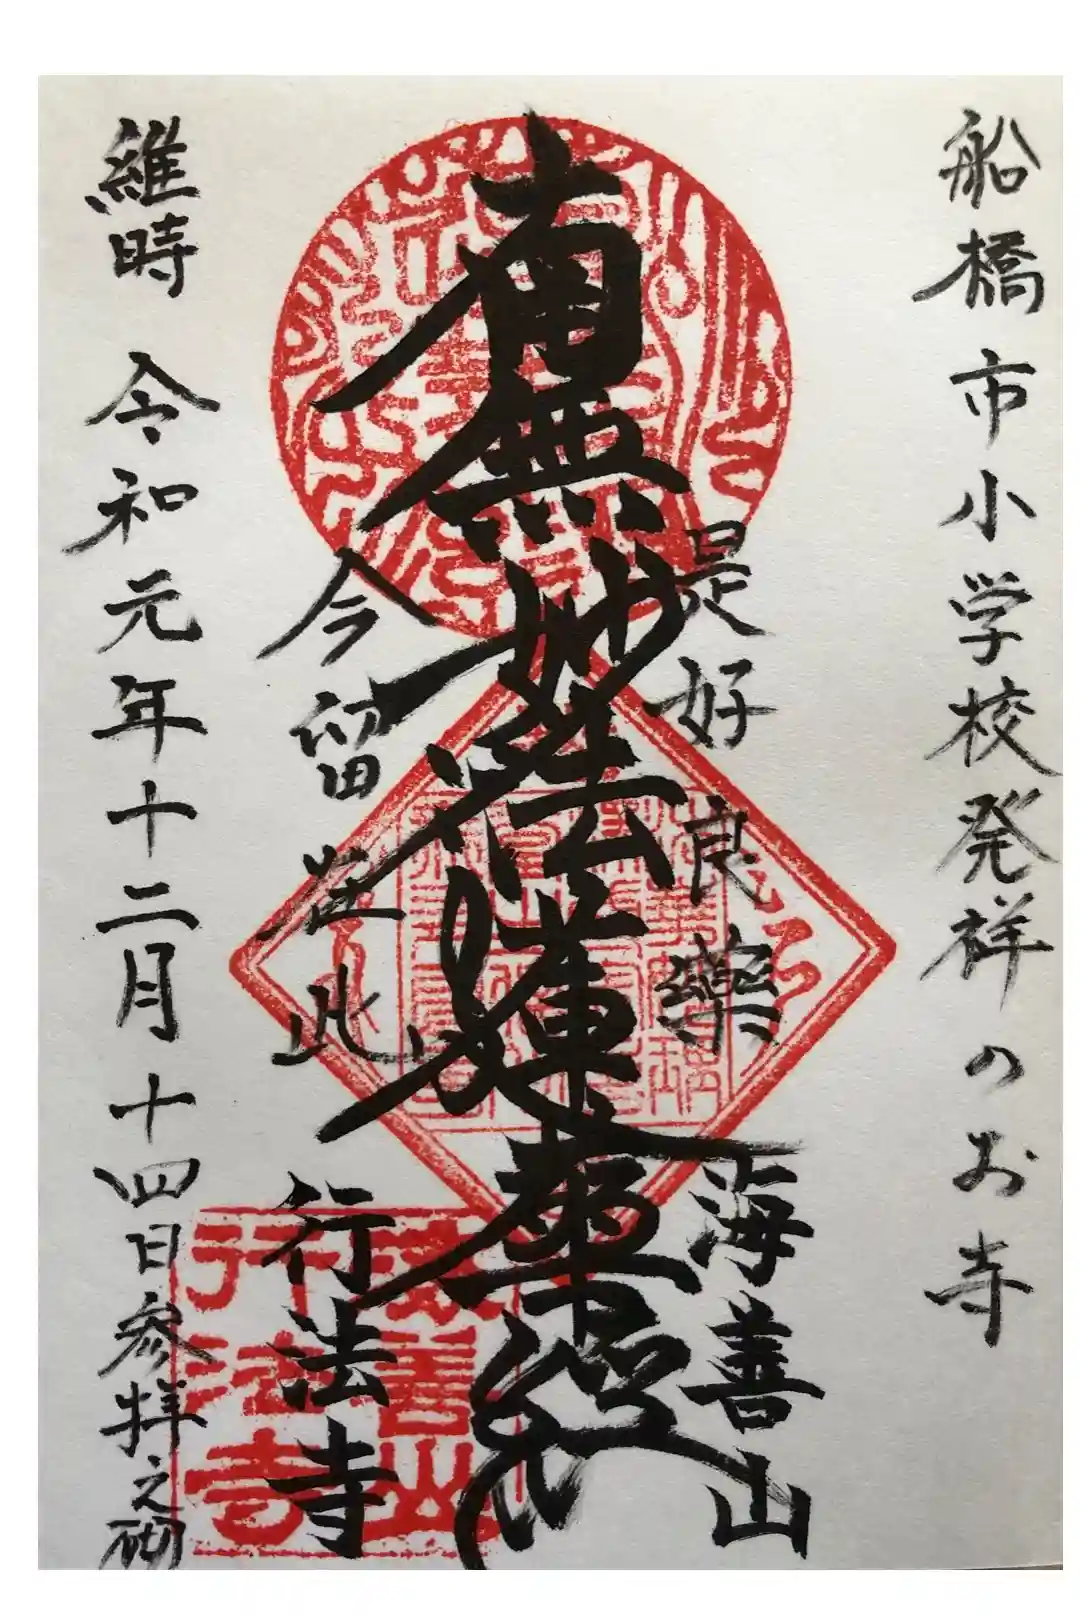 船橋市小学校発祥のお寺
是好良薬
海善山
南無妙法蓮華経
今留在此
行法寺
海善山
行法寺
維時令和元年十二月十四日参拝之砌